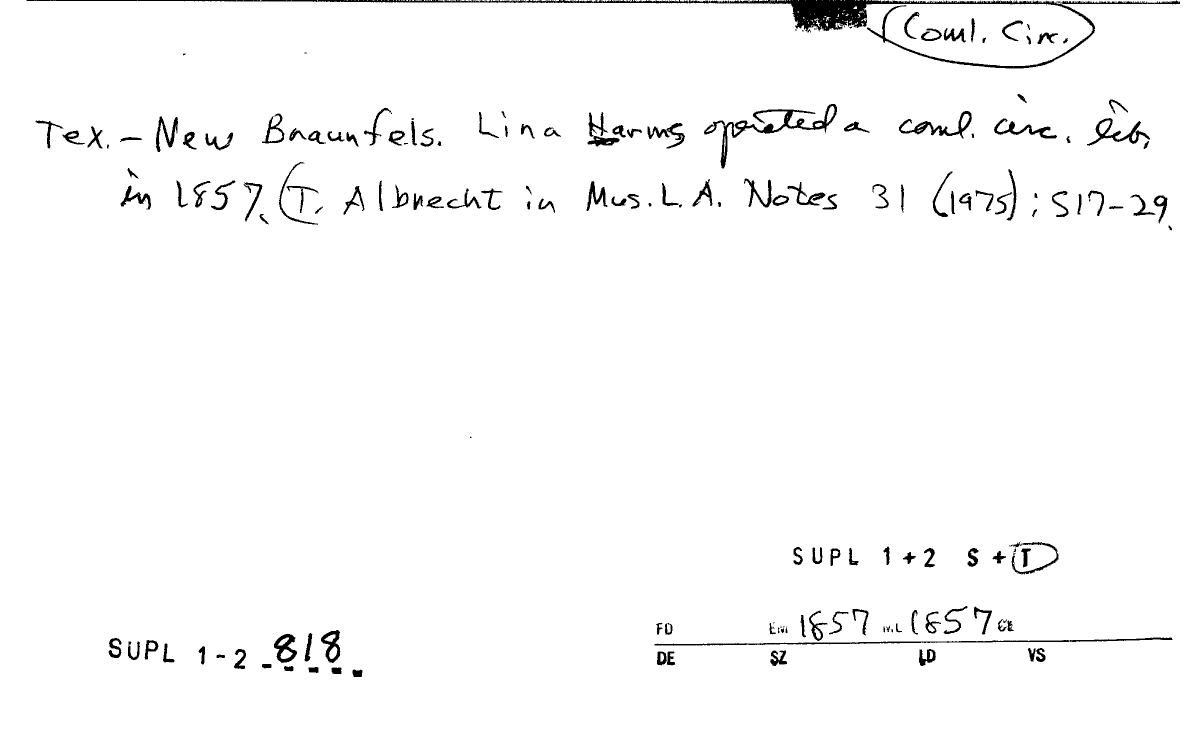 Coml. Circ.
Tex. - New Braunfels. Lina Harms operated a coml. circ. lib.
in 1857. (T. Albrecht in Mus. L.A. Notes 31 (1975): 517-29.
SUPL 1+2 S+T
FD 1857 1857
SUPL 1-2 818
DE SZ LD VS